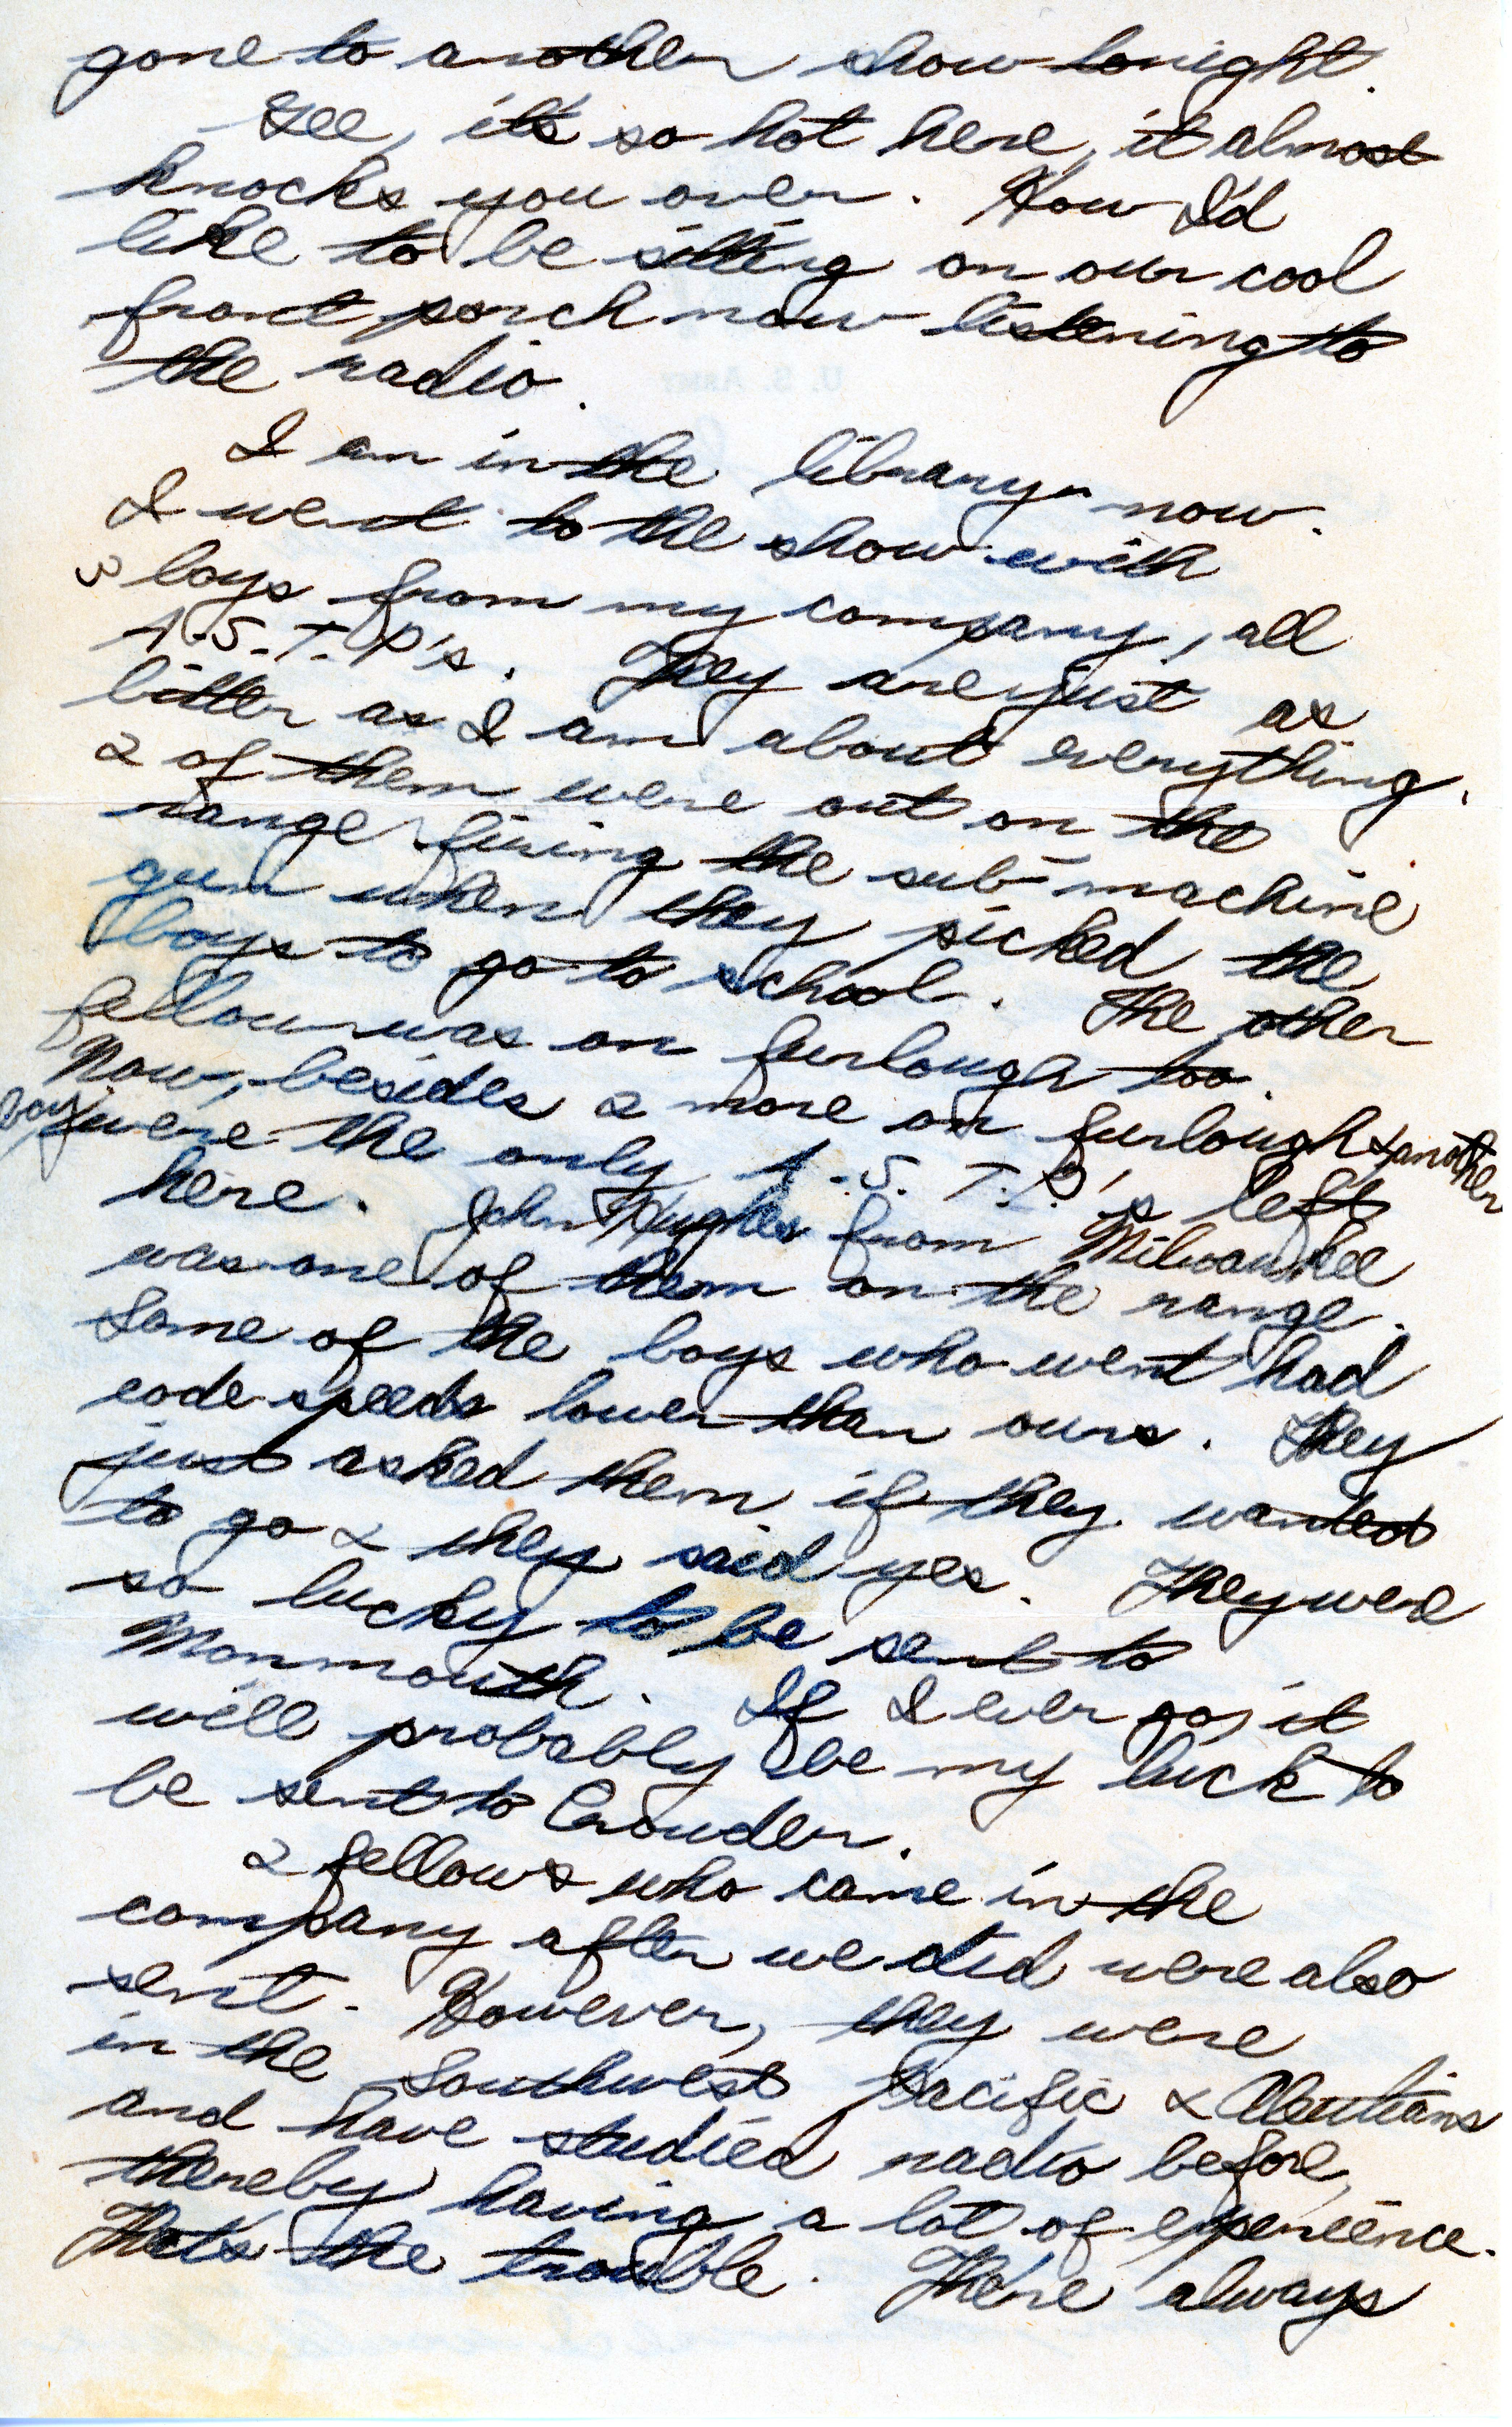 gone to another show tonight.
Gee, it's so hot here, it almost
knocks you over. How I'd
like to be sitting on our cool
front porch now listening to
the radio.
I am in the library now.
I went to the show with
3 boys from my company, all
A.S.T.P.'s. They are just as
bitter as I am about everything.
2 of them were out on the
range firing the sub-machine
gun when they picked the
boys to go to school. The other
fellow was on furlough too.
Now, besides 2 more on furlough & another
boy were the only A.S.T.P.'s left
here. John Hughes from Milwaukee
was one of them on the range.
Some of the boys who went had
code speeds lower than ours. They
just asked them if they wanted
to go & they said yes. They were
so lucky to be sent to
Monmouth. If I ever go, it
will probably be my luck to
be sent to Crowder.
2 fellows who came in the
company after we did were also
sent. However, they were
in the Southwest Pacific & Aleutians
and have studied radio before,
thereby having a lot of experience.
That's the trouble. There always
U. S. ARMY